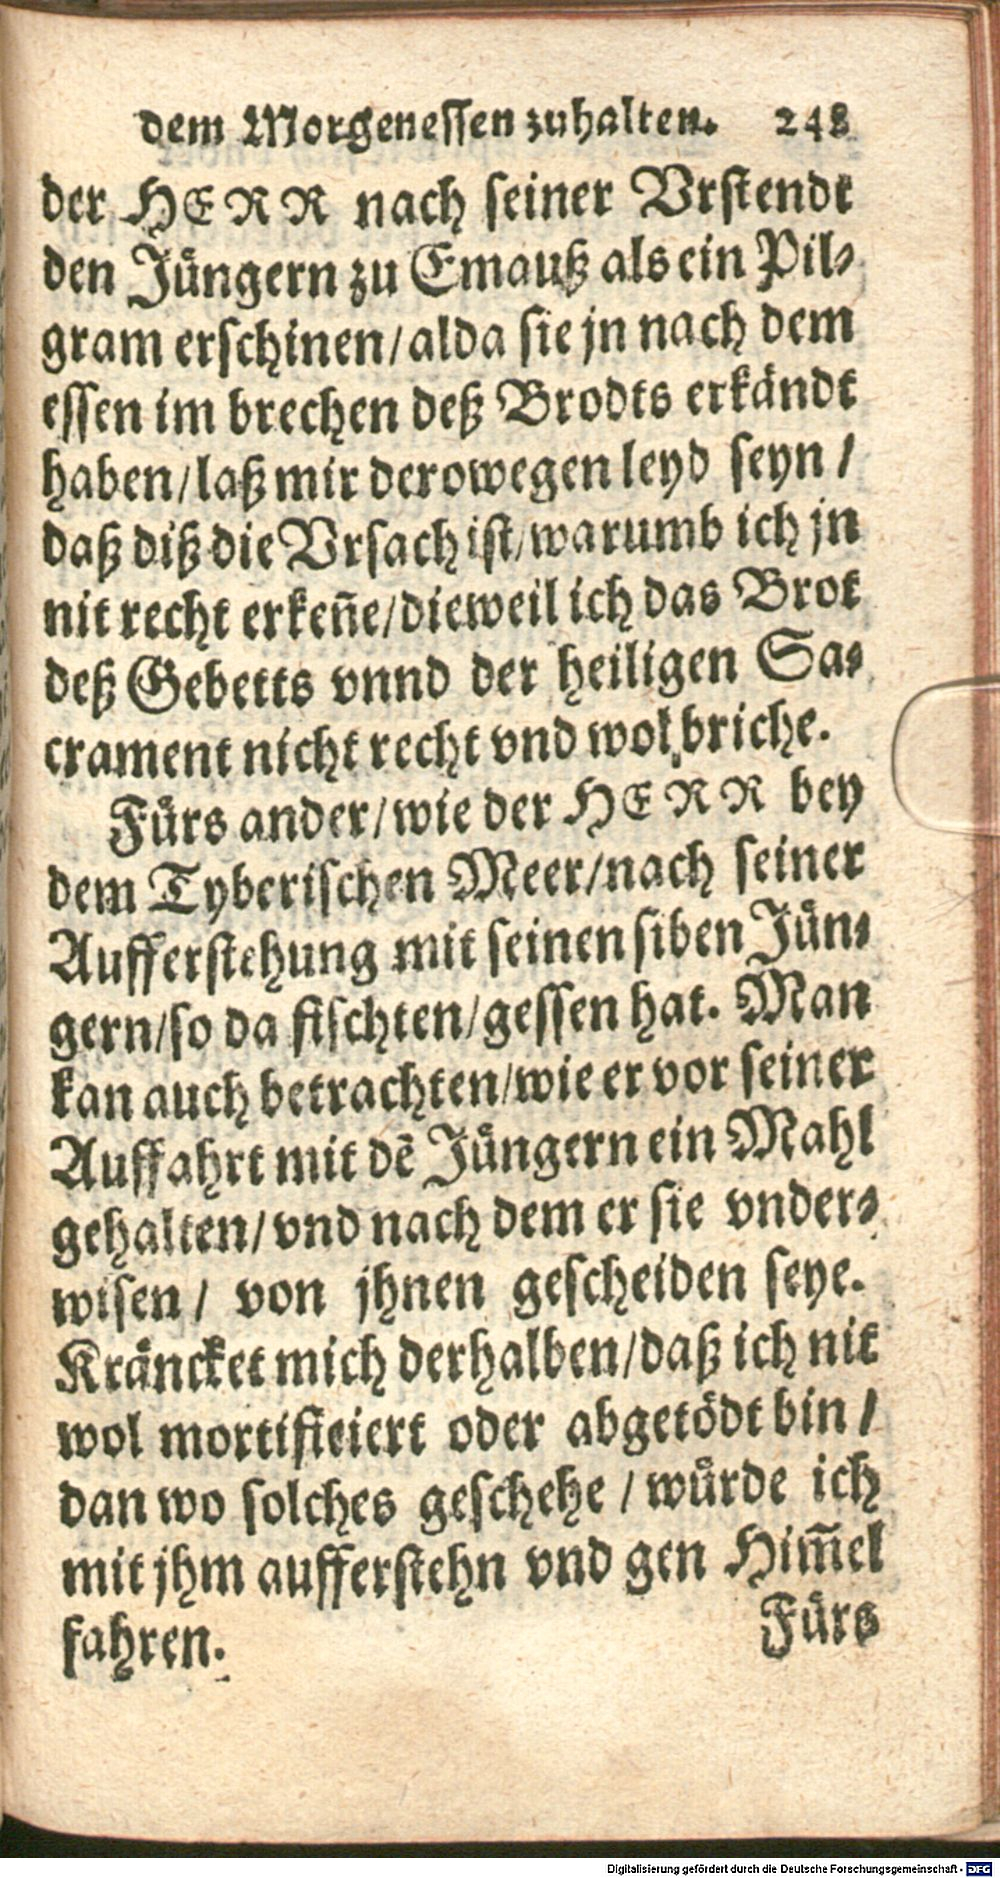 dem Morgenessen zuhalten. 248
der HERR nach seiner Vrstendt
den Jüngern zu Emauß als ein Pil⸗
gram erschinen/alda sie jn nach dem
essen im brechen deß Brodts erkändt
haben/laß mir derowegen leyd seyn/
daß diß die Vrsach ist/warumb ich jn
nit recht erkeñe/dieweil ich das Brot
deß Gebetts vnnd der heiligen Sa⸗
crament nicht recht vnd wol briche.
Fürs ander/wie der HERR bey
dem Tyberischen Meer/nach seiner
Aufferstehung mit seinen siben Jün⸗
gern/so da fischten/gessen hat. Man
kan auch betrachten/wie er vor seiner
Auffahrt mit dē Jüngern ein Mahl
gehalten/vnd nach dem er sie vnder⸗
wisen/ von jhnen gescheiden seye.
Kräncket mich derhalben/daß ich nit
wol mortificiert oder abgetödt bin/
dan wo solches geschehe/würde ich
mit jhm aufferstehn vnd gen Him̃el
fahren.
Fürs
Digitalisierung gefördert durch die Deutsche Forschungsgemeinschaft - DFG